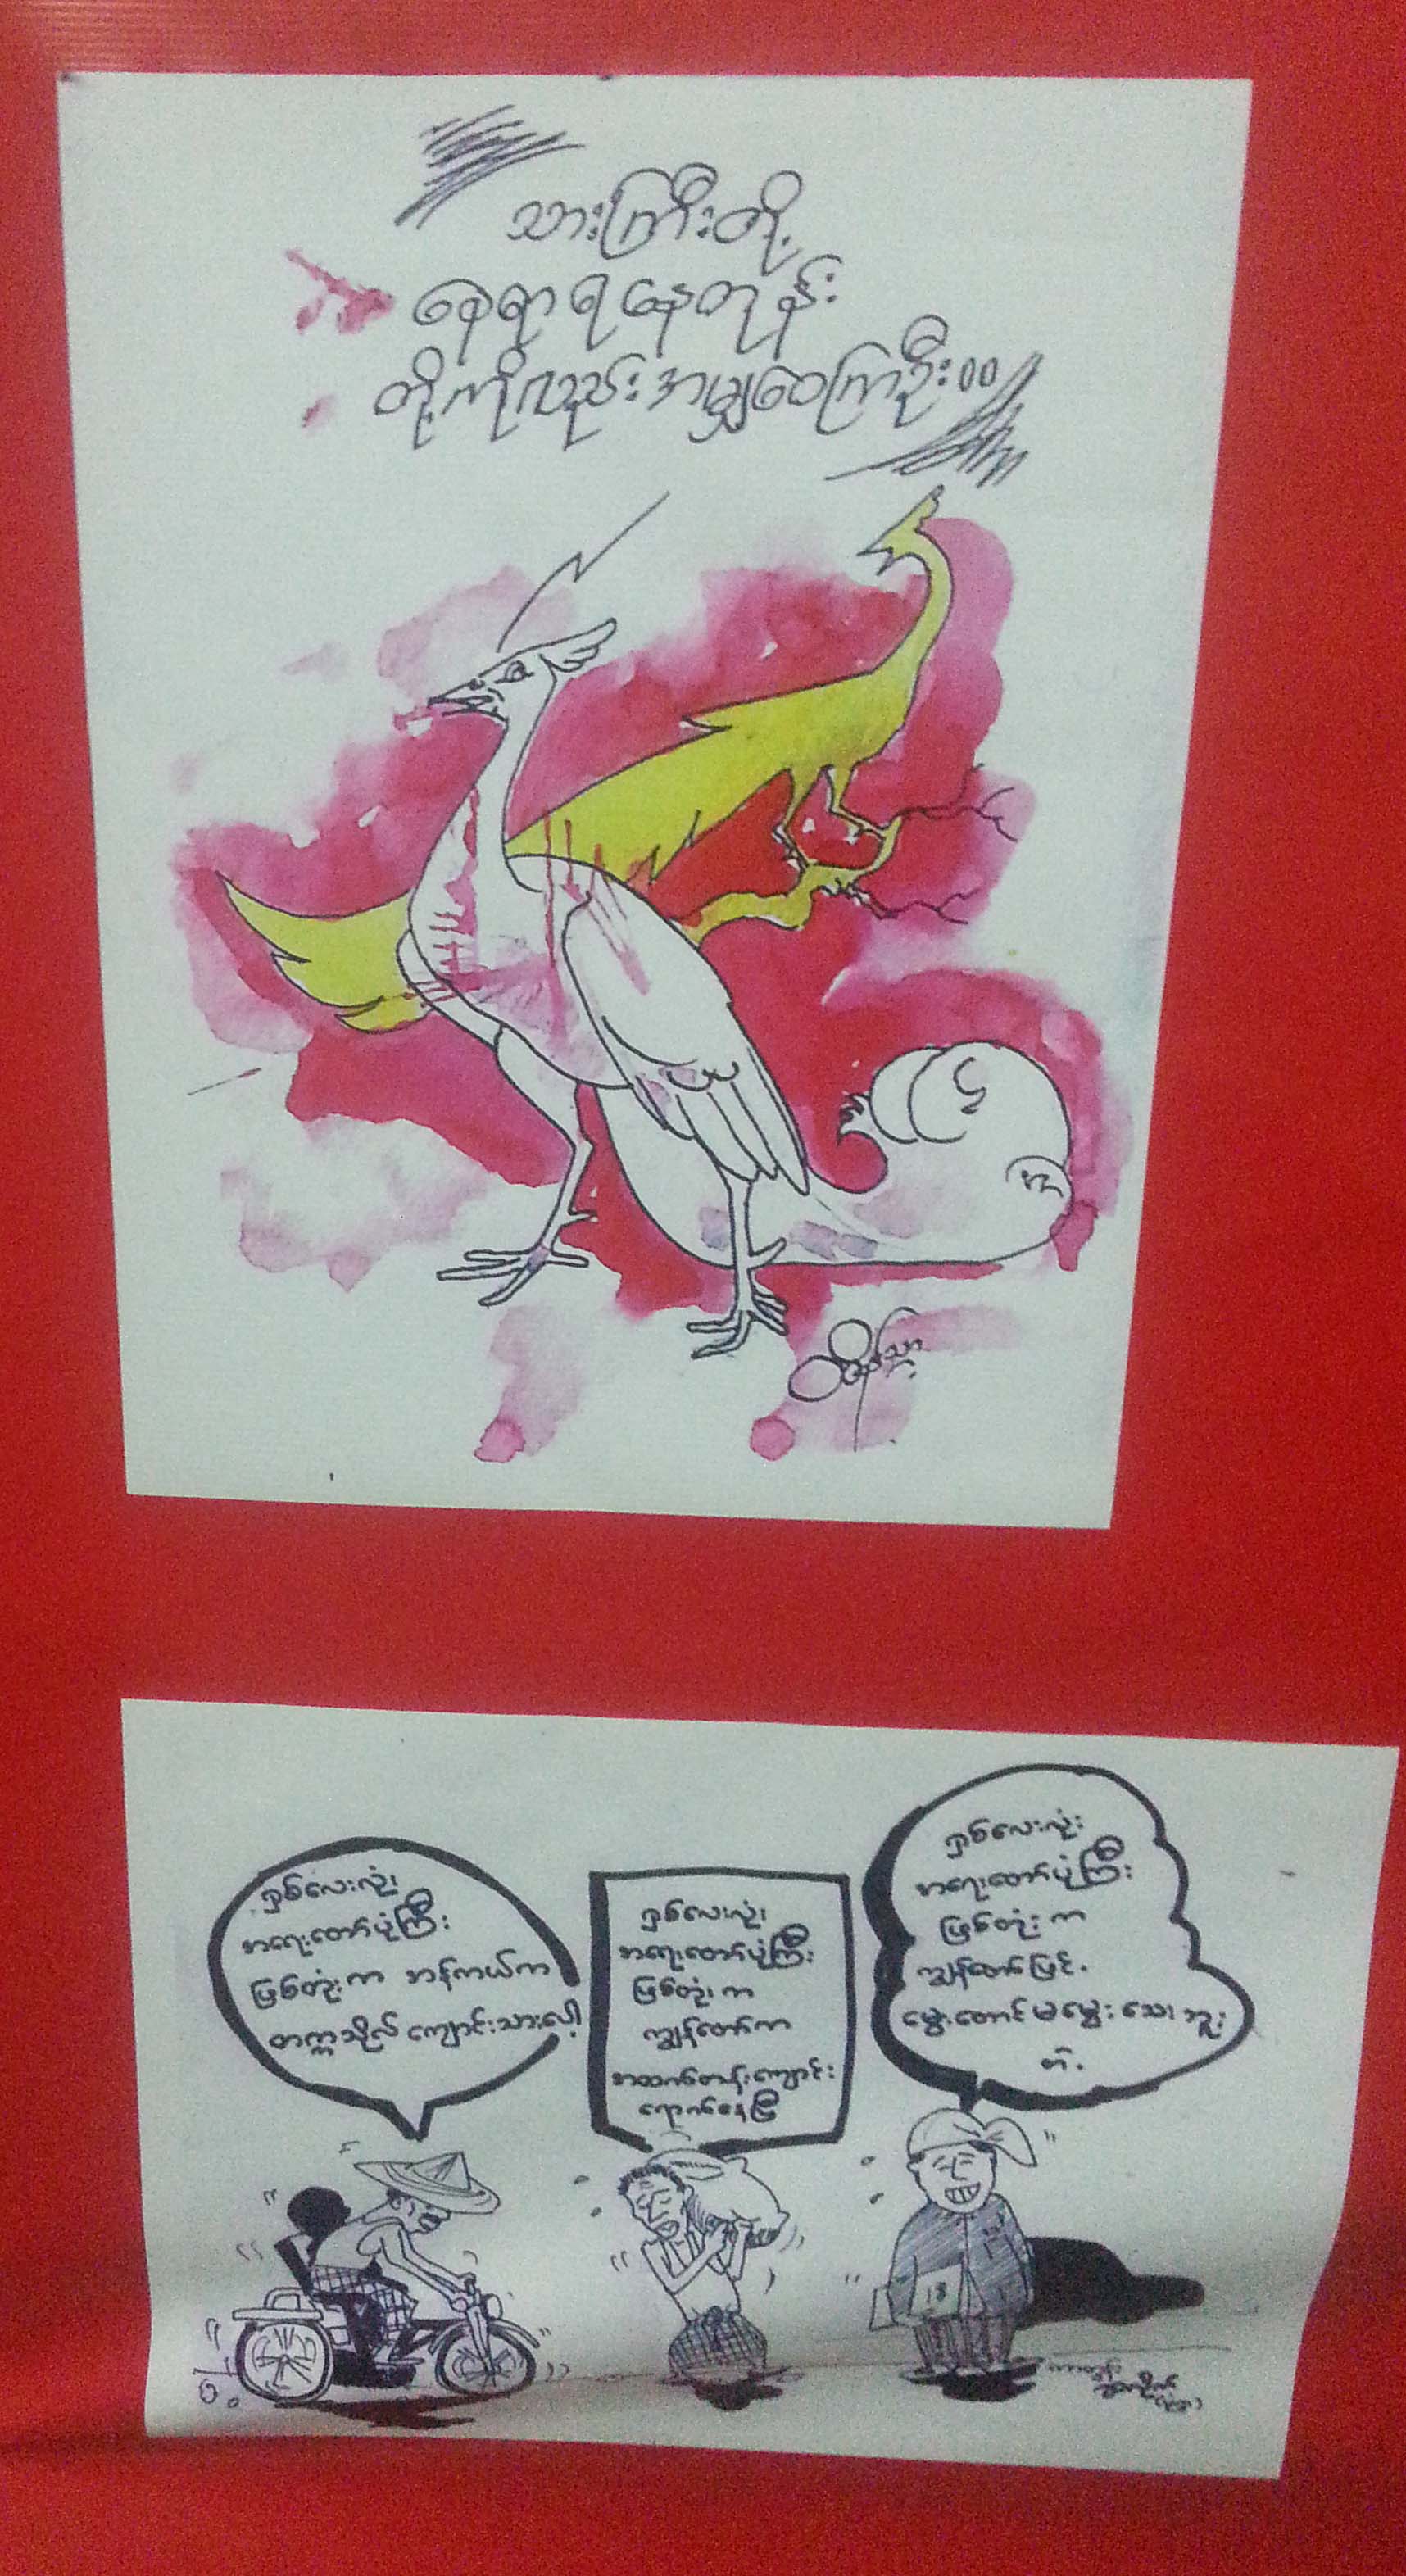 သားကြီးတို့
နေရာရနေတုန်း
တို့ကိုလည်းအမျှဝေကြဦး။
ရှစ်လေးလုံး
အရေးတော်ပုံကြီး
ဖြစ်တုံးက အန်ကယ်က
တက္ကသိုလ်ကျောင်းသားပေါ့
ရှစ်လေးလုံး
အရေးတော်ပုံကြီး
ဖြစ်တုံးက
ကျွန်တော်က
အထက်တန်းကျောင်း
ရောက်နေပြီ
ရှစ်လေးလုံး
အရေးတော်ပုံကြီး
ဖြစ်တုံးက
ကျွန်တော်ဖြင့်
မွေးတောင်မမွေးသေးဘူး